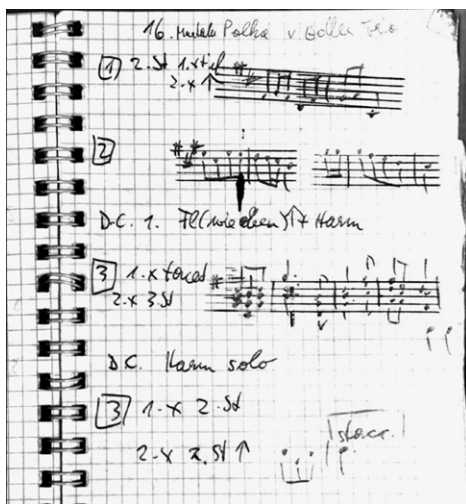 16. Polka v Trio
1 2. St 1. x tief
2. x ↑
2
D.C. 1. Fl (wie oben) ↑ + Harm
3 1. x
2. x 3. St
D.C. Harm solo
3 1. x 2. St
2. x 2. St ↑
stacc.